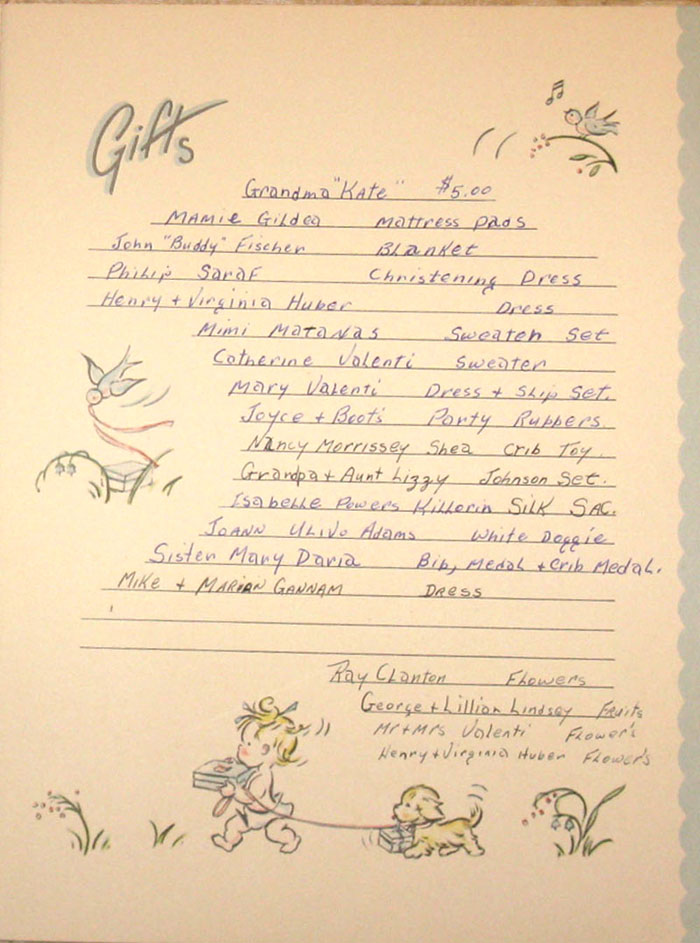 Gifts
Grandma "Kate" $5.00
Mamie Gildea Mattress Pads
John "Buddy" Fischer Blanket
Philip Saraf Christening Dress
Henry + Virginia Huber Dress
Mimi Matanas Sweater Set
Catherine Valenti Sweater
Mary Valenti Dress + Slip Set.
Joyce + Boots Party Rubbers
Nancy Morrissey Shea Crib Toy.
Grandpa + Aunt Lizzy Johnson Set.
Isabelle Powers Killorin Silk Sac.
JoAnn Ulivo Adams White Doggie
Sister Mary Daria Bib, Medal + Crib Medal.
Mike + Marian Gannam Dress
Ray Clanton Flowers
George + Lillian Lindsey Fruits
Mr + Mrs Valenti Flower's
Henry + Virginia Huber Flower's